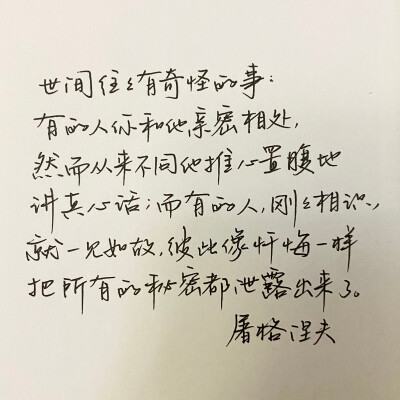 世间往往有奇怪的事：
有的人你和他亲密相处，
然而从来不同他推心置腹地
讲真心话；而有的人，刚刚相识，
就一见如故，彼此像忏悔一样
把所有的秘密都泄露出来了。
屠格涅夫